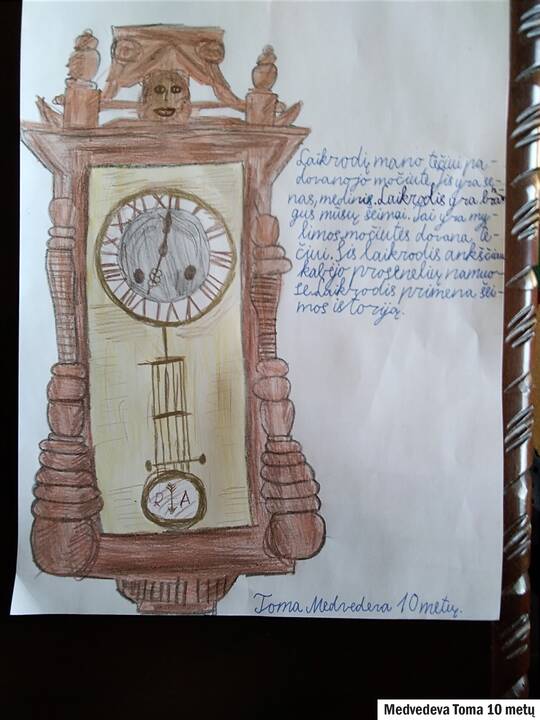 Laikrodį mano tėčiui pa-
dovanojo močiutė, jis yra se-
nas, medinis. Laikrodis yra bra-
gus mūsų šeimai. Tai yra my-
limos močiutės dovana tė-
čiui. Šis laikrodis anksčiau
kabėjo prosenelių namuo-
se. Laikrodis primena šei-
mos istoriją.
R A
Toma Medvedeva 10 metų.
Medvedeva Toma 10 metų